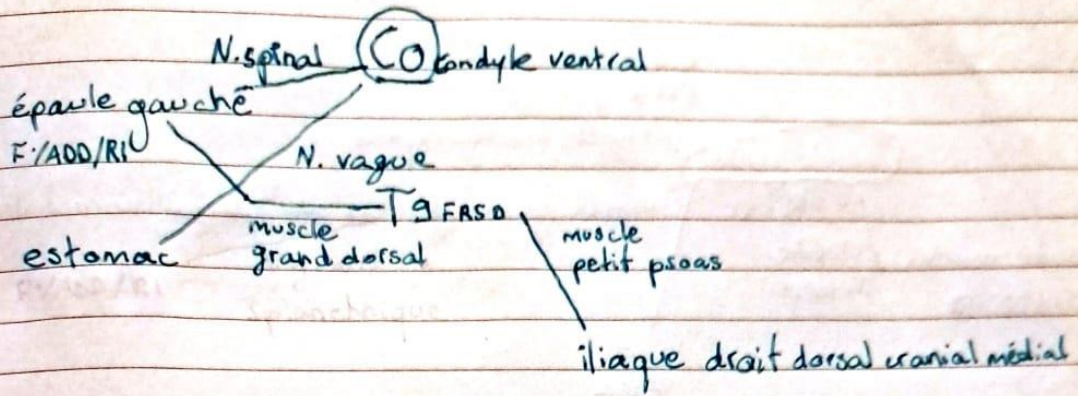 N. spinal CO condyle ventral
épaule gauche
F/ADD/RI
N. vague
T9 FRSD
estomac muscle muscle
grand dorsal petit psoas
iliaque droit dorsal cranial médial